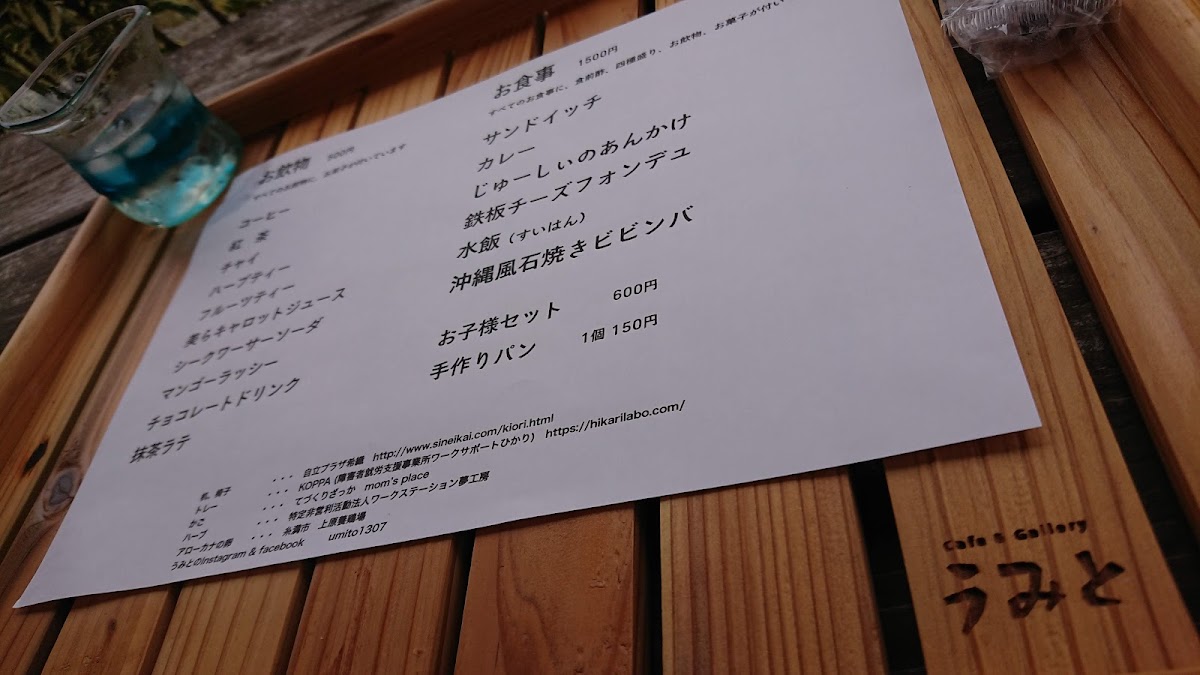 お飲物 500円
すべてのお飲物に、お菓子が付いています
コーヒー
紅 茶
チャイ
ハーブティー
フルーツティー
美らキャロットジュース
シークワーサーソーダ
マンゴーラッシー
チョコレートドリンク
抹茶ラテ
お食事 1500円
すべてのお食事に、食前酢、四種盛り、お飲物、お菓子が付い
サンドイッチ
カレー
じゅーしぃのあんかけ
鉄板チーズフォンデュ
水飯（すいはん）
沖縄風石焼きビビンバ
お子様セット 600円
手作りパン 1個 150円
机、椅子 ・・・ 自立プラザ希織 http://www.sineikai.com/kiori.html
トレー ・・・ KOPPA (障害者就労支援事業所ワークサポートひかり) https://hikarilabo.com/
かご ・・・ てづくりざっか mom's place
ハーブ ・・・ 特定非営利活動法人ワークステーション夢工房
アローカナの卵 ・・・ 糸満市 上原養鶏場
うみとのInstagram & facebook umito1307
Cafe & Gallery
うみと